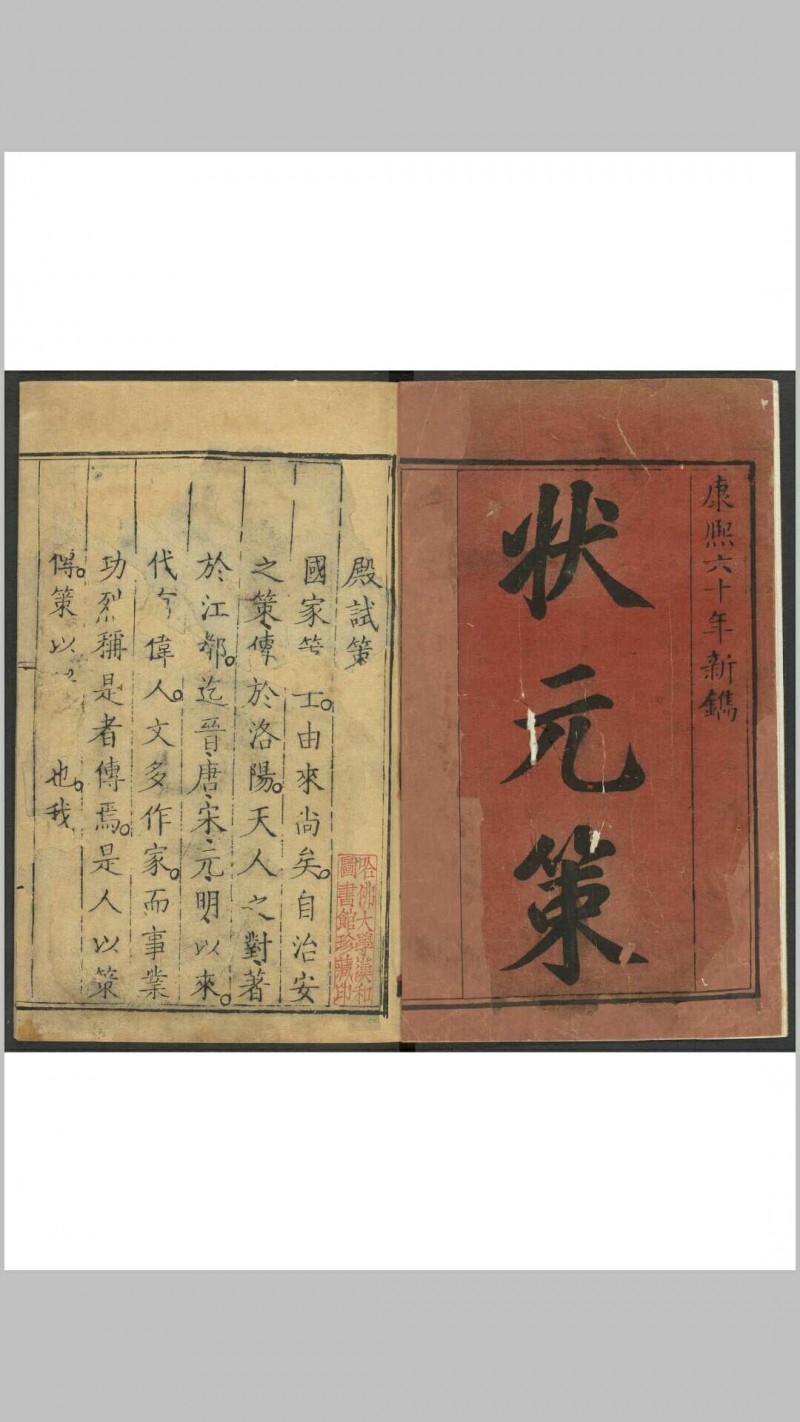 康熙六十年新鐫
狀元策
殿試策
國家 士由來尚矣自治安
之策傳於洛陽天人之對著
於江都迄晉唐宋元明以來
代 偉人文多作家而事業
功烈稱是者傳焉是人以策
傳策以 也我
哈佛大學漢和
圖書館珍藏印